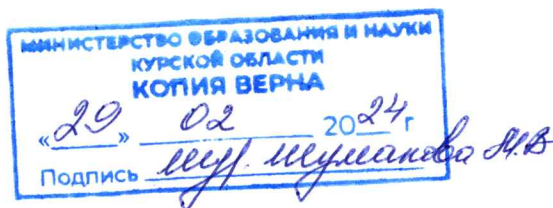 МИНИСТЕРСТВО ОБРАЗОВАНИЯ И НАУКИ
КУРСКОЙ ОБЛАСТИ
КОПИЯ ВЕРНА
«29» 02 2024 г
Подпись Шуманова М.В